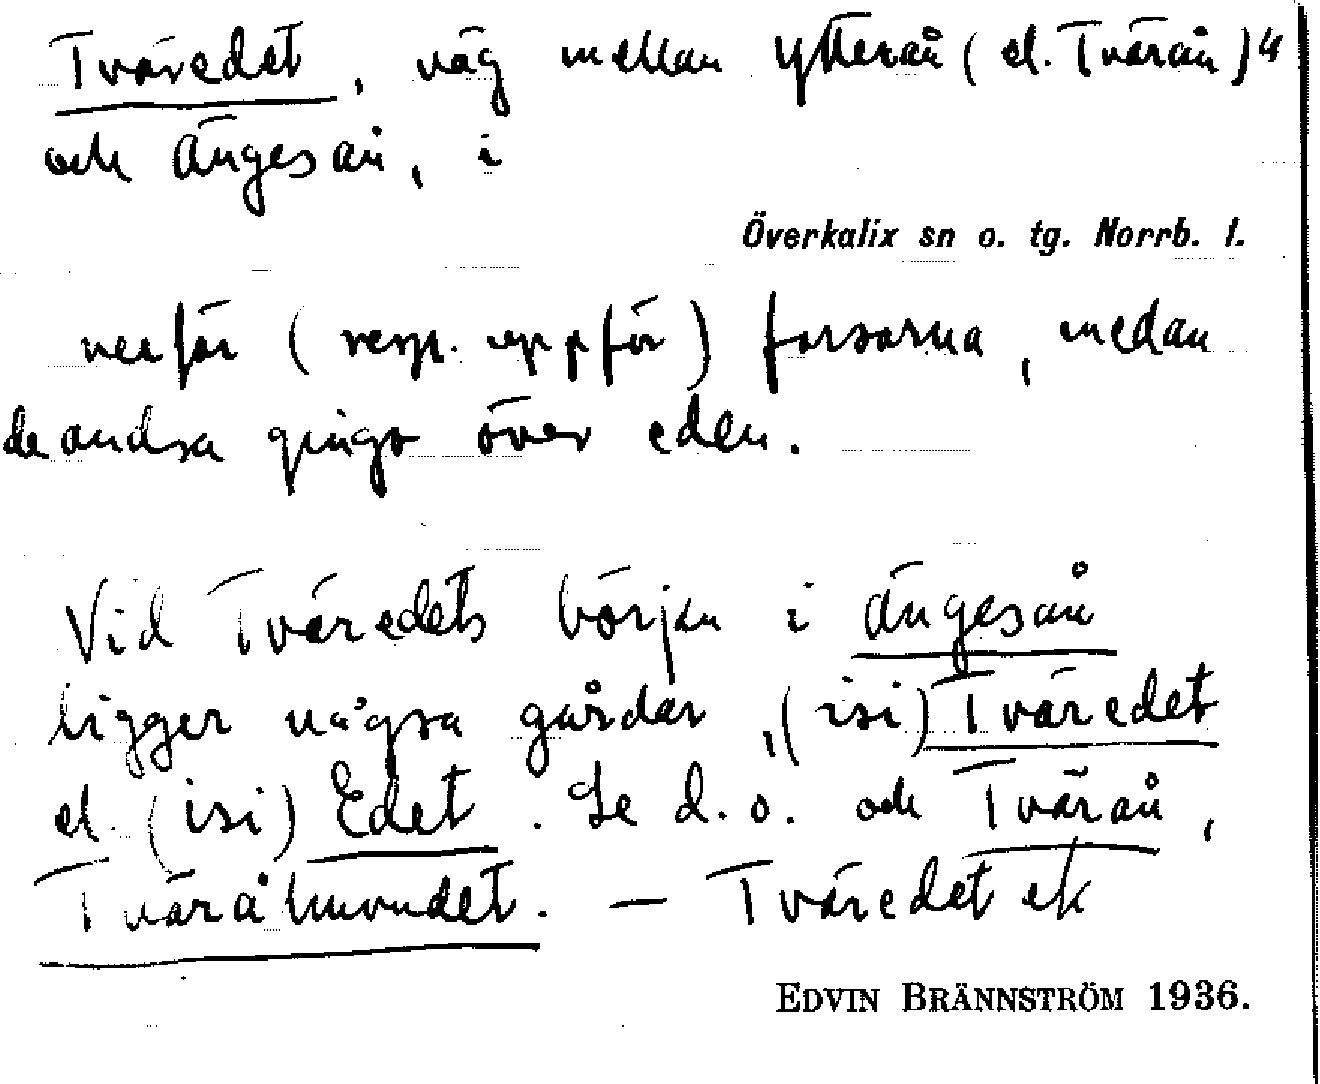 Tväredet, väg mellan Ytterån (el. Tvärån) 4
och Ängesån, i
Överkalix sn o. tg. Norrb. l.
nerför (resp. uppför) forsarna, medan
de andra gingo över eden.
Vid Tväredets början i Ängesån
ligger några gårdar, (isi) Tväredet
el. (isi) Edet. Se d. o. och Tvärån,
Tvärålmundet. — Tväredet ek
EDVIN BRÄNNSTRÖM 1936.